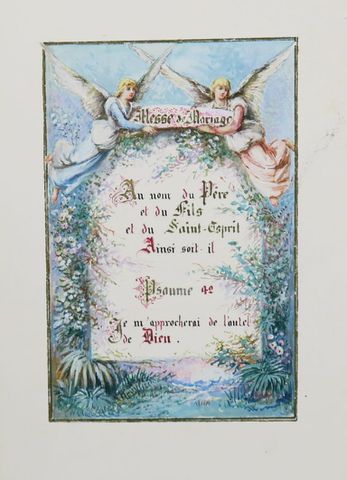 Messe de Mariage
Au nom du Père
et du Fils
et du Saint-Esprit
Ainsi soit-il
Psaume 42
Je m'approcherai de l'autel
de Dieu.